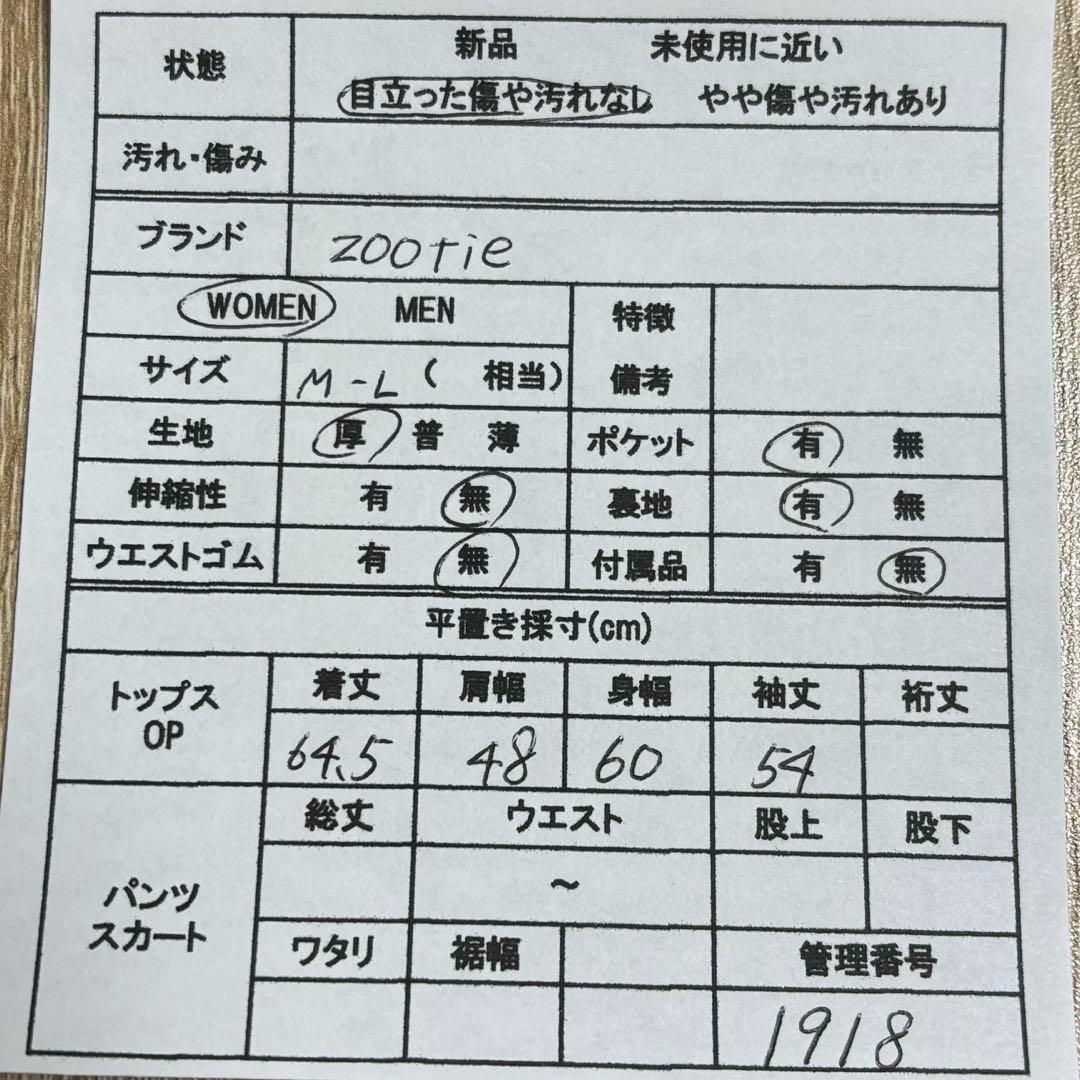 状態 新品 未使用に近い
目立った傷や汚れなし やや傷や汚れあり
汚れ・傷み
ブランド zootie
WOMEN MEN 特徴
サイズ M-L ( 相当) 備考
生地 厚 普 薄 ポケット 有 無
伸縮性 有 無 裏地 有 無
ウエストゴム 有 無 付属品 有 無
平置き採寸(cm)
トップス OP 着丈 肩幅 身幅 袖丈 裄丈
64.5 48 60 54
パンツ スカート 総丈 ウエスト 股上 股下
~
ワタリ 裾幅 管理番号
1918